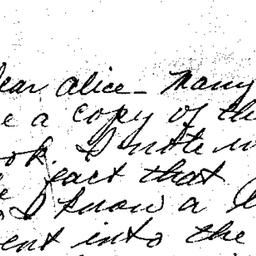 ear Alice - Many
e a copy of th
ook. I note w
e fact that
I know a l
ent into the